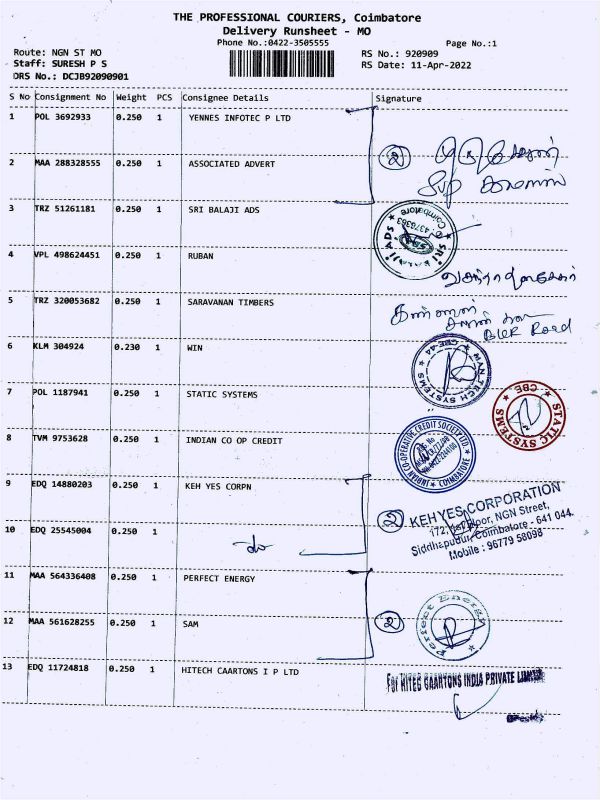 THE PROFESSIONAL COURIERS, Coimbatore
Delivery Runsheet - MO
Phone No.:0422-3505555
Page No.:1
Route: NGN ST MO
RS No.: 920909
Staff: SURESH P S
RS Date: 11-Apr-2022
DRS No.: DCJB92090901
S No Consignment No Weight PCS Consignee Details Signature
1 POL 3692933 0.250 1 YENNES INFOTEC P LTD
2
2 MAA 288328555 0.250 1 ASSOCIATED ADVERT
3 TRZ 51261181 0.250 1 SRI BALAJI ADS
SRI BALAJI ADS
Coimbatore
4 VPL 498624451 0.250 1 RUBAN
5 TRZ 320053682 0.250 1 SARAVANAN TIMBERS
Road
6 KLM 304924 0.230 1 WIN
WIN TECH SYSTEMS CBE-44
7 POL 1187941 0.250 1 STATIC SYSTEMS
STATIC SYSTEMS CBE
8 TVM 9753628 0.250 1 INDIAN CO OP CREDIT
INDIAN CO-OPERATIVE CREDIT SOCIETY LTD
COIMBATORE
9 EDQ 14880203 0.250 1 KEH YES CORPN
2
KEH YES CORPORATION
172, 1st Floor, NGN Street,
Siddhapudur, Coimbatore - 641 044.
Mobile : 96779 58098
10 EDQ 25545004 0.250 1
do
11 MAA 564336408 0.250 1 PERFECT ENERGY
2
Perfect Energy
12 MAA 561628255 0.250 1 SAM
13 EDQ 11724818 0.250 1 HITECH CAARTONS I P LTD
For HITEC CAARTONS INDIA PRIVATE LIMITED